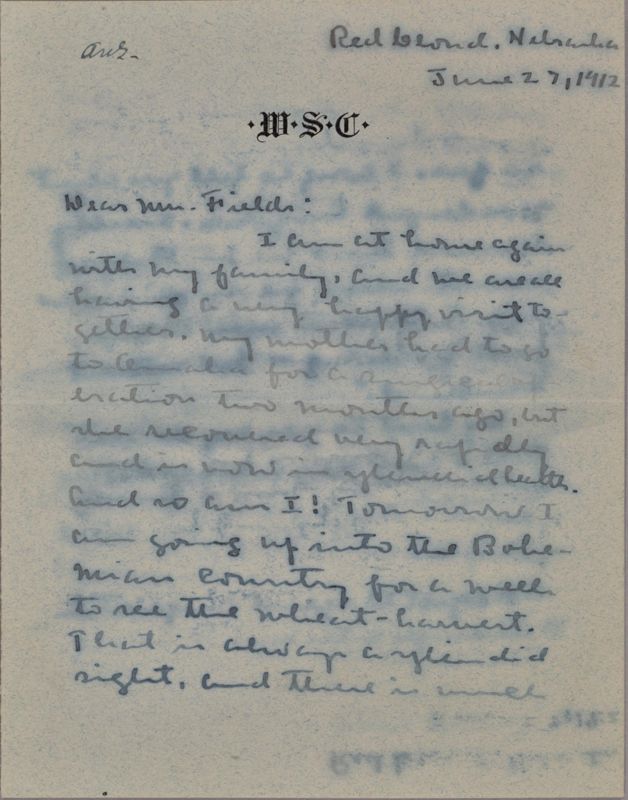 Ans-
Red Cloud, Nebraska
June 27, 1912
·W·S·C·
Dear Mrs. Fields:
I am at home again
with my family, and we are all
having a very happy visit to-
gether. My mother had to go
to Omaha for a surgical op-
eration two months ago, but
she recovered very rapidly
and is now in splendid health.
And so am I! Tomorrow I
am going up into the Bohe-
mian country for a week
to see the wheat-harvest.
That is always a splendid
sight, and there is much